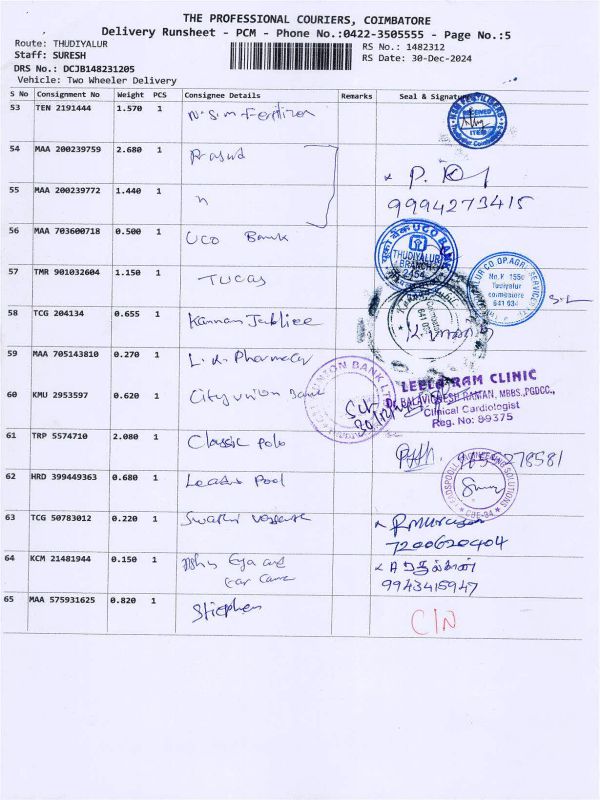 THE PROFESSIONAL COURIERS, COIMBATORE
Delivery Runsheet - PCM - Phone No.:0422-3505555 - Page No.:5
Route: THUDIYALUR
RS No.: 1482312
Staff: SURESH
RS Date: 30-Dec-2024
DRS No.: DCJB148231205
Vehicle: Two Wheeler Delivery
S No Consignment No Weight PCS Consignee Details Remarks Seal & Signature
53 TEN 2191444 1.570 1 N.S.M Fertilizer
RECEIVED
ITEM
54 MAA 200239759 2.680 1 Prasad
55 MAA 200239772 1.440 1 "
9994273415
56 MAA 703600718 0.500 1 UCO Bank
यूको बैंक UCO BANK
THUDIYALUR
BRANCH
2154
57 TMR 901032604 1.150 1 TUCAS
CO OP.AGRI SERVICE
No.K 1550
Tudiyalur
coimbatore
641 034
58 TCG 204134 0.655 1 Kannan Jubliee
59 MAA 705143810 0.270 1 L.R. Pharmacy
60 KMU 2953597 0.620 1 City union Bank
UNION BANK LTD
30/12/24
LEELA RAM CLINIC
Dr. BALAVIGNESH RAMAN, MBBS.,PGDCC.,
Clinical Cardiologist
Reg. No: 89375
61 TRP 5574710 2.080 1 Classic polo
62 HRD 399449363 0.680 1 Leads Pool
LEADSPOOL ENGINEERING SOLUTIONS
CBE-34
63 TCG 50783012 0.220 1 Swathi
7200620404
64 KCM 21481944 0.150 1 Eye and
Ear Care
9943415947
65 MAA 575931625 0.820 1 Stiephen
C/N